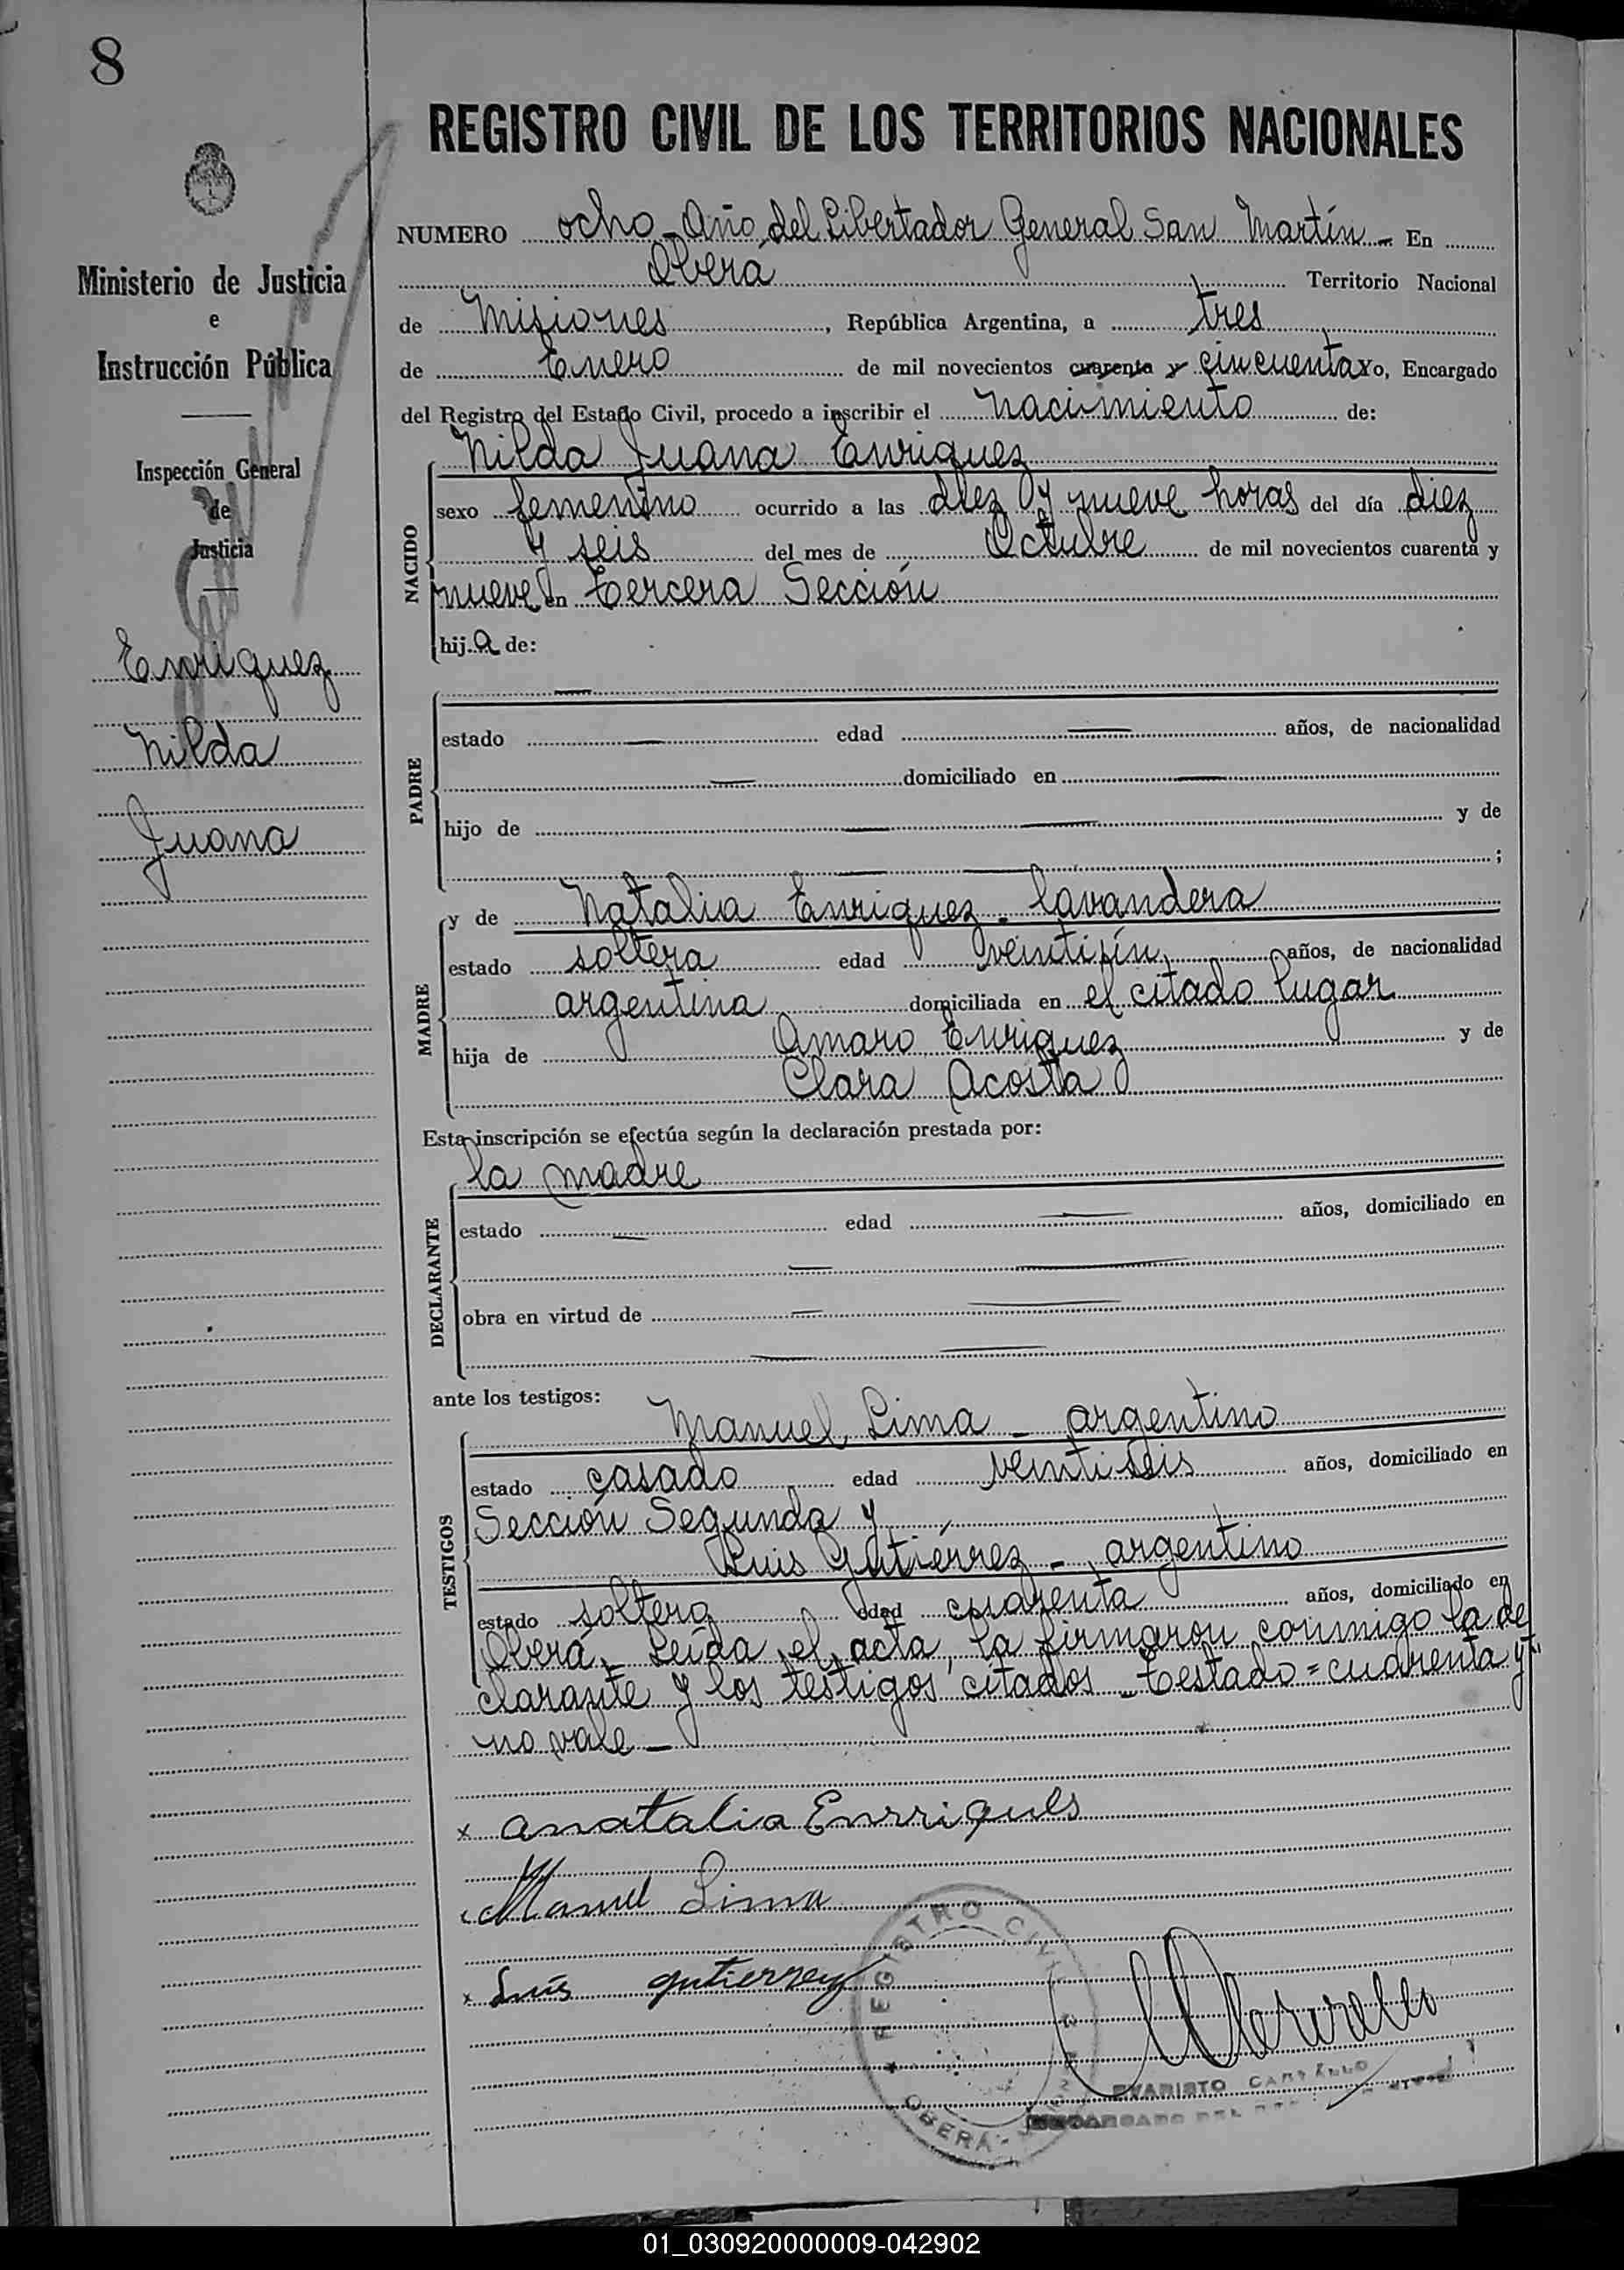 8
REGISTRO CIVIL DE LOS TERRITORIOS NACIONALES
Ministerio de Justicia
e
Instrucción Pública
Inspección General
de
Justicia
Enriquez
Nilda
Juana
NUMERO ocho - Año del Libertador General San Martín - En
Oberá Territorio Nacional
de Misiones, República Argentina, a tres
de Enero de mil novecientos cuarenta y cincuenta yo, Encargado
del Registro del Estado Civil, procedo a inscribir el nacimiento de:
NACIDO
Nilda Juana Enriquez
sexo femenino ocurrido a las diez y nueve horas del día diez
y seis del mes de Octubre de mil novecientos cuarenta y
nueve en tercera Sección
hij.a de:
PADRE
estado — edad — años, de nacionalidad
— domiciliado en —
hijo de — y de
— ;
MADRE
y de Natalia Enriquez - lavandera
estado soltera edad años, de nacionalidad
argentina domiciliada en el citado lugar
hija de Amaro Enriquez y de
Clara Acosta
Esta inscripción se efectúa según la declaración prestada por:
DECLARANTE
la madre
estado — edad — años, domiciliado en
obra en virtud de —
ante los testigos:
TESTIGOS
Manuel Lima - argentino
estado casado edad veintiseis años, domiciliado en
Sección Segunda y
Luis Gutiérrez - argentino
estado soltero edad cuarenta años, domiciliado en
Oberá. Leída el acta, la firmaron conmigo la de
clarante y los testigos citados - Testado = cuarenta y"
no vale -
x anatalia Enrriques
Manuel Lima
x Luis gutierrez
REGISTRO CIVIL
OBERÁ
EVARISTO CARVALLO
ENCARGADO DEL
01_030920000009-042902